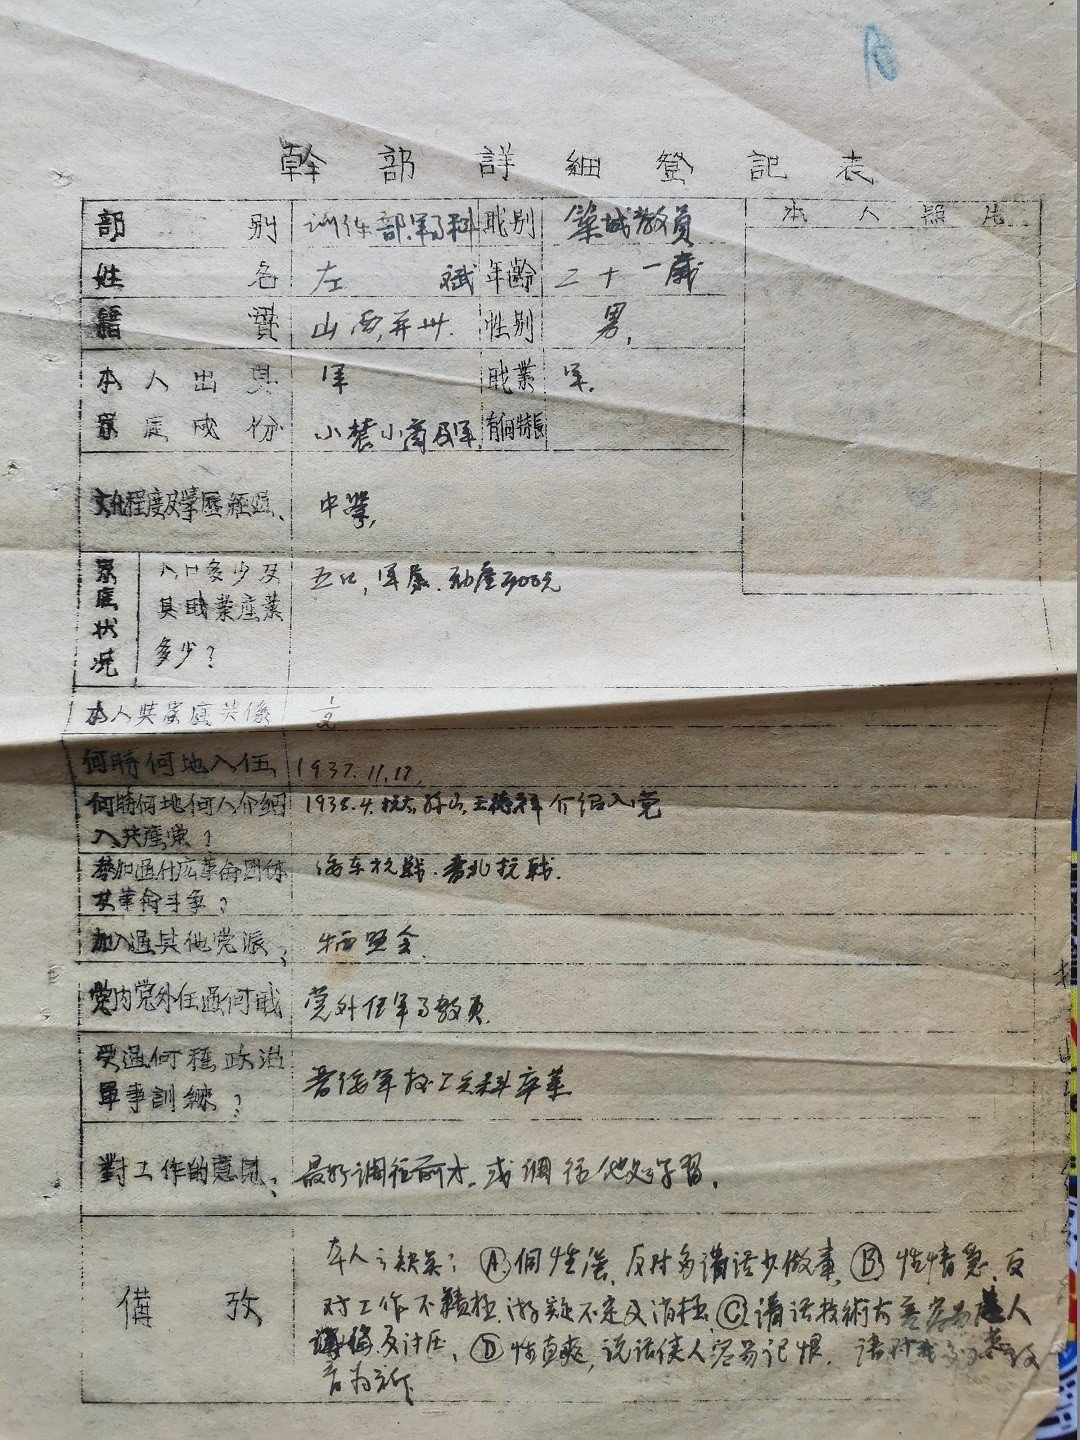 幹部詳細登記表
部別 訓练部軍事科 職別 築城教員 本人照片
姓名 左斌 年齡 二十一歲
籍貫 山西 性别 男,
本人出身 军 職業 军.
家庭成份 小農小商及军. 有何特長
文化程度及學歷經过. 中學,
家庭状况 人口多少及 五口,军属.动產300元
其職業產業
多少?
本人與家庭关係
何時何地入伍, 1937.11.17.
何時何地何人介紹 1938.4.抗大 介绍入党
入共產党?
參加過什広革命團体 绥东抗戰.晋北抗戰.
及革命斗争?
加入過其他党派, 牺盟会.
党内党外任過何职 党外任军事教員.
受過何種政治 晋绥军校工兵科卒業
軍事訓練?
對工作的意見, 最好调往前方.或调往他处学習.
備攷 本人之缺点:Ⓐ個性强,反对多講话少做事,Ⓑ性情急,反
对工作不積极,游疑不定及消极,Ⓒ講话技術太差容易 人
及计压,Ⓓ性直爽,说话使人容易记恨.